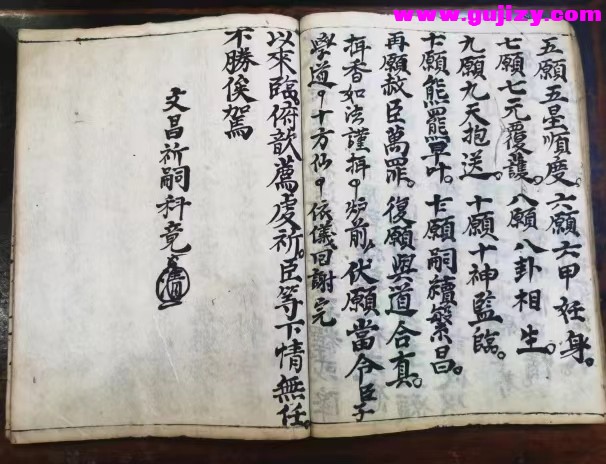 www.gujizy.com
五願五星順度。六願六甲妊身。
七願七元覆護。八願八卦相生。
九願九天抱送。十願十神監臨。
願熊羆早叶。願嗣續繁昌。
再願赦臣萬罪。復願與道合真。
揖香如法謹揖爐前伏願當今臣子
學道十方仙依儀回謝完
以來臨俯歆薦虔祈。臣等下情無任。
不勝俟駕
文昌祈嗣科竟